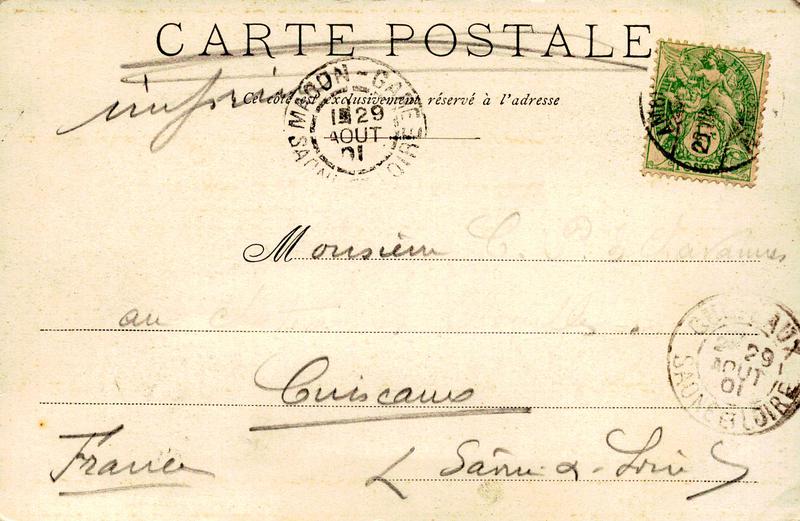 CARTE POSTALE
imprimé
Ce côté est exclusivement réservé à l'adresse
MACON - GARE
29
AOUT
01
SAONE LOIRE
5
Monsieur C. P. de Chavannes
au
Cuiseaux
CUISEAUX
29
AOUT
01
SAONE ET LOIRE
France
( Saône-&-Loire )